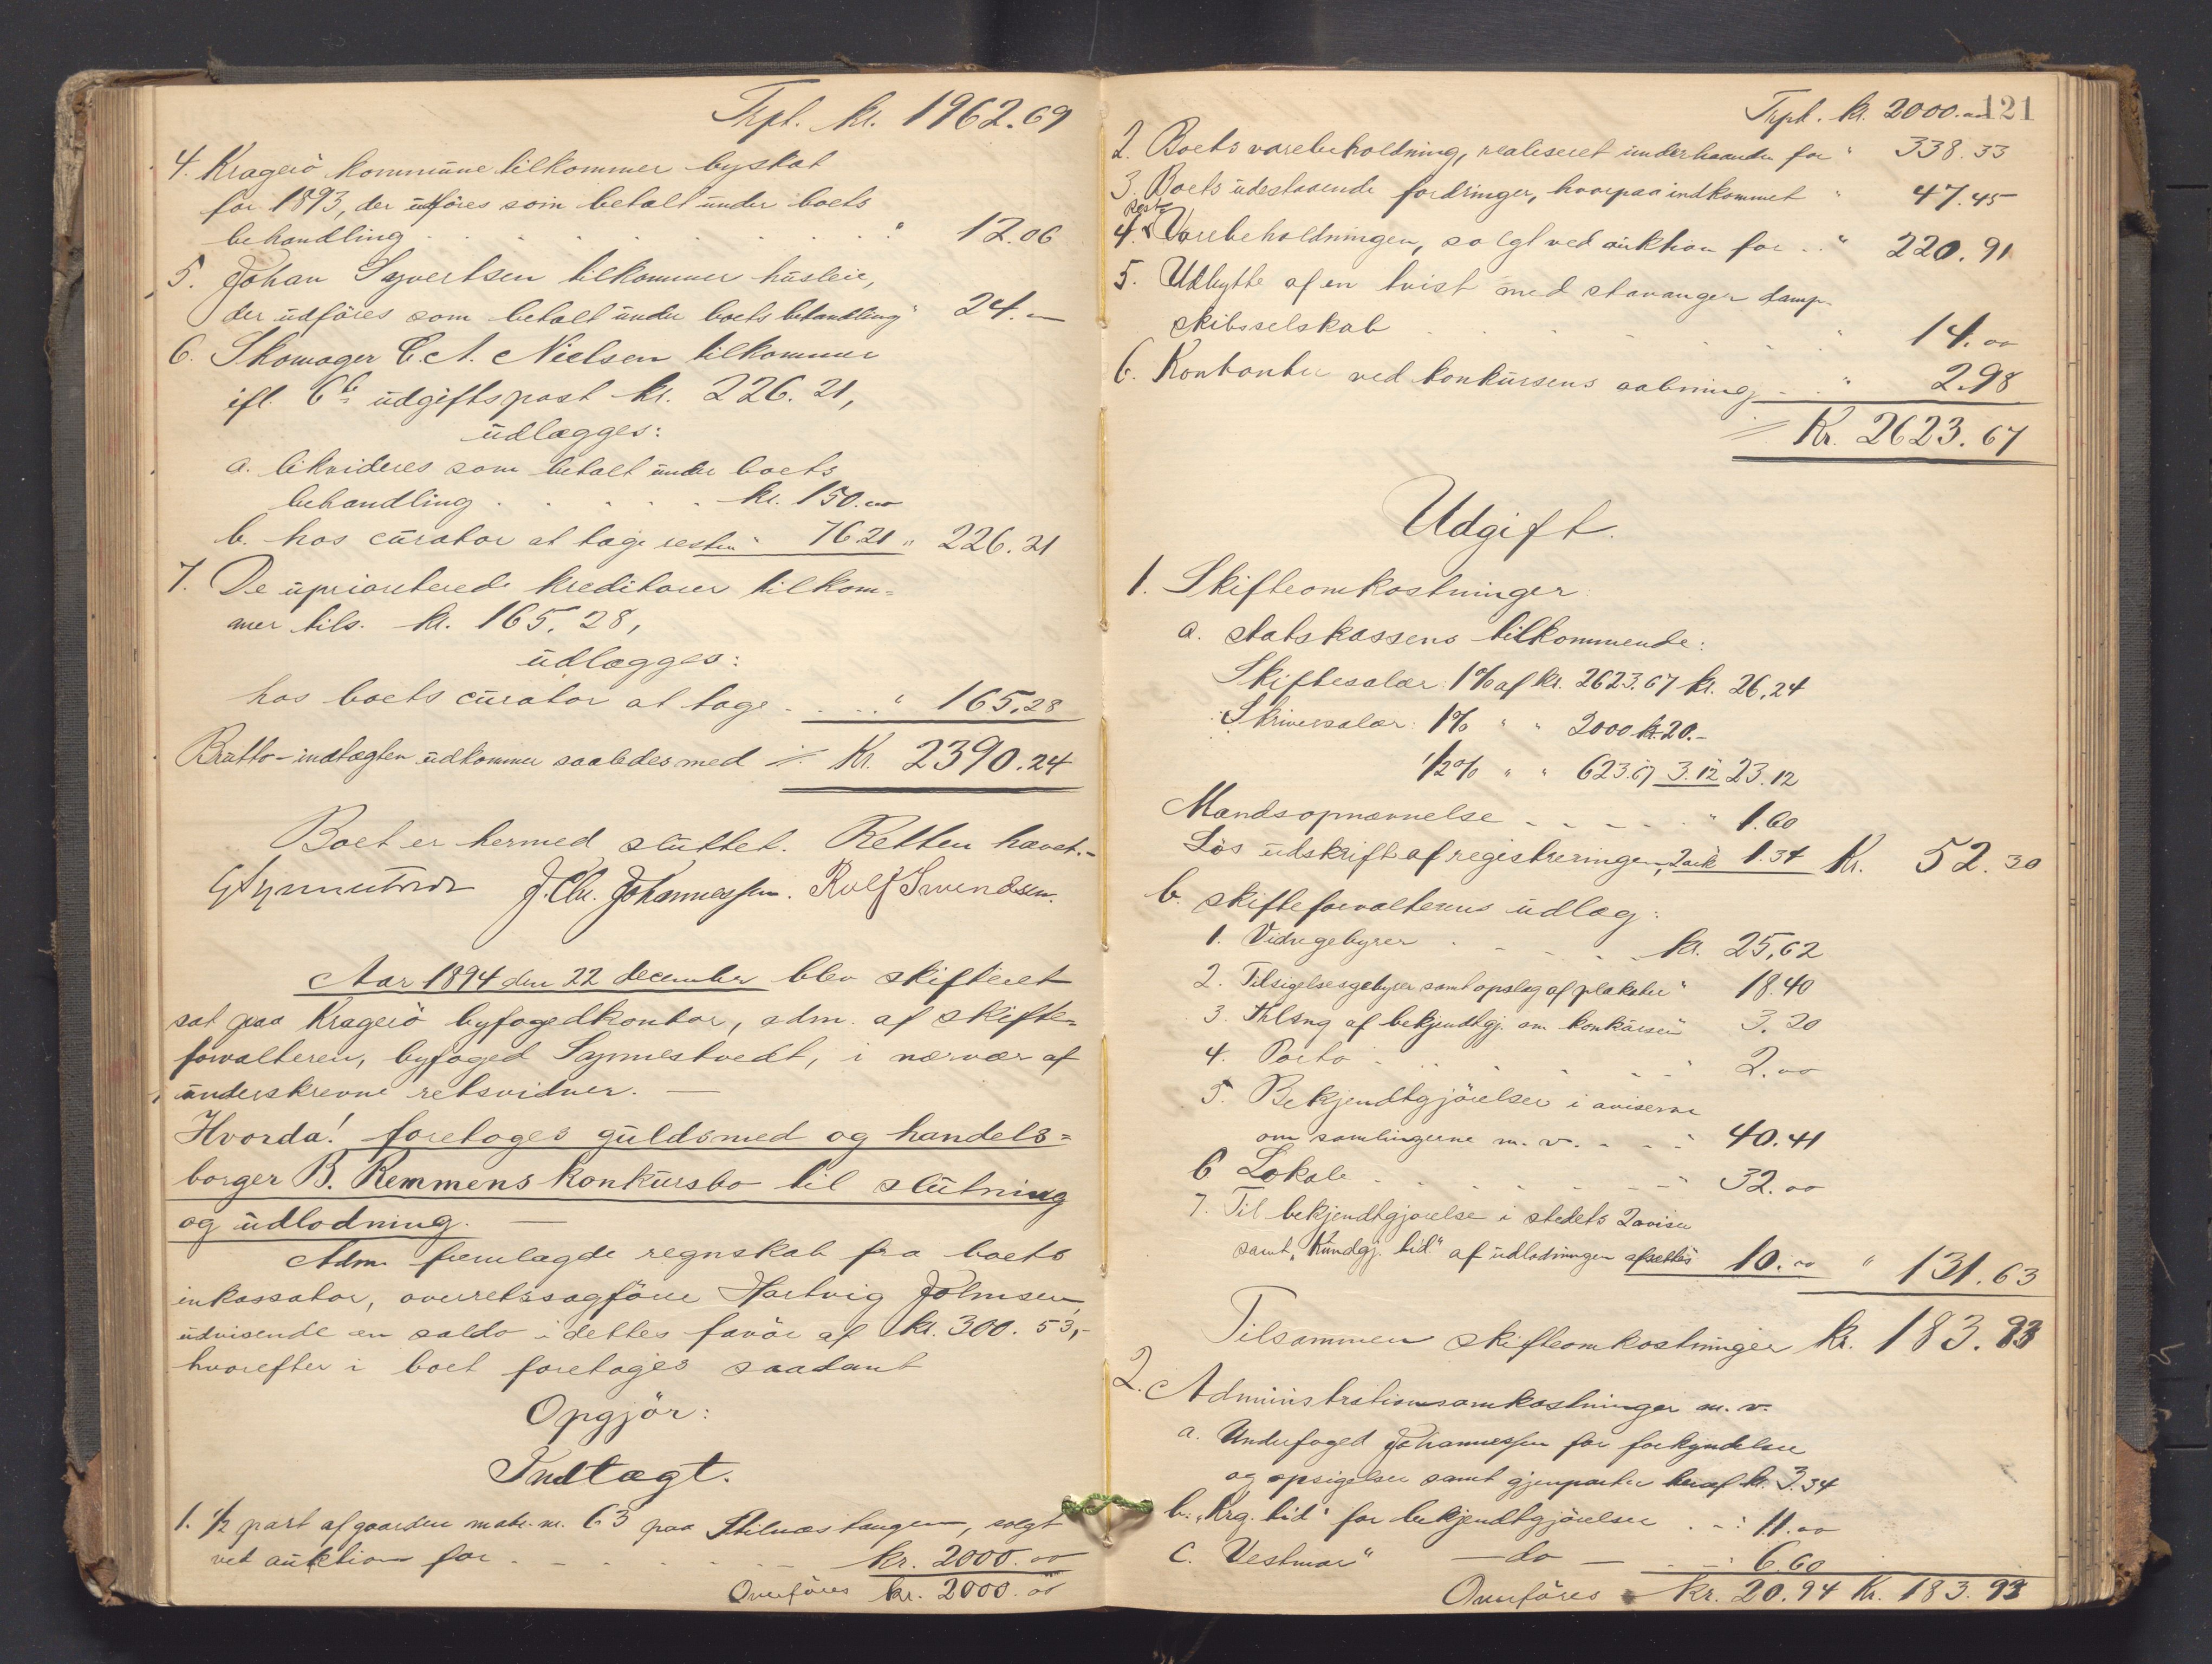 Trpt. kr. 1962.69
4. Kragerö kommune tilkommer byskat
for 1893, der udföres som betalt under boets
behandling . . . . . . . . . " 12.06
5. Johan Syvertsen tilkommer husleie,
der udföres som betalt under boets behandling " 24.-
6. Skomager C. A. Nielsen tilkommer
ifl. 6te udgiftspost kr. 226.21,
udlægges:
a. likvideres som betalt under boets
behandling . . . . . . kr. 150.00
b. hos curator at tage resten " 76.21 " 226.21
7. De uprioriterede kreditorer tilkom=
mer tils. kr. 165.28,
udlægges:
hos boets curator at tage . . . . " 165.28
Brutto-indtægten udkommer saaledes med ./. Kr. 2390.24
Boet er hermed sluttet. Retten hævet.-
J. Chr. Johannessen. Rolf Svendsen.
Aar 1894 den 22 december blev skifteret
sat paa Kragerö byfogedkontor, adm. af skifte=
forvalteren, byfoged Synnestvedt, i nærvær af
underskrevne retsvidner. —
Hvorda! foretoges guldsmed og handels=
borger B. Remmens konkursbo til slutning
og udlodning. —
Adm. fremlagde regnskab fra boets
inkassator, overretssagförer Hartvig Johnsen,
udvisende en saldo i dettes favör af kr. 300.53,-
hvorefter i boet foretoges saadant
Opgjör:
Indtægt.
1. 1/2 part af gaarden matr. nr. 63 paa Stilnæstangen, solgt
ved auktion for . - - - - - kr. 2000.00
Overföres kr. 2000.00
121
Trpt. kr. 2000.00
2. Boets varebeholdning, realiseret underhaanden for " 338.33
3. Boets udestaaende fordringer, hvorpaa indkommet " 47.45
reste
4. Varebeholdningen, solgt ved auktion for . . " 220.91
5. Udbytte af en tvist med stavanger damp-
skibsselskab . . . . . . " 14.00
6. Kontanter ved konkursens aabning - . " 2.98
./. Kr. 2623.67
Udgift.
1. Skifteomkostninger:
a. statskassens tilkommende:
Skiftesalær: 1% af kr. 2623.67 kr. 26.24
Skriversalær: 1% " " 2000 kr. 20.-
1/2% " " 623.67 3.12 23.12
Mandsopnævnelse - - - - - " 1.60
Lös udskrift af registreringen, 2 ark 1.34 Kr. 52.30
b. skifteforvalterens udlæg:
1. Vidnegebyrer . - - - kr. 25,62
2. Tilsigelsesgebyrer samt opslag af plakater " 18.40
3. Thlsng af bekjendtgj. om konkursen " 3.20
4. Porto - . . - - - " 2.00
5. Bekjendtgjörelser i aviserne
om samlingerne m. v. - - - " 40.41
6 Lokale . - - - - - " 32.00
7. Til bekjendtgjørelse i stedets 2 aviser
samt "Kundgj. tid" af udlodningen afsættes 10.00 " 131.63
Tilsammen skifteomkostninger kr. 183.93
2. Administrationsomkostninger m. v.
a. Underfoged Johannessen for forkyndelser
og opsigelser samt gjenparter heraf kr. 3.34
b. "Krg. tid" for bekjendtgjörelser . - " 11.00
c. Vestmar" — do — . - " 6.60
Overföres kr. 20.94 Kr. 183.93